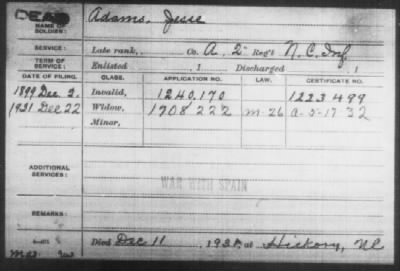 DEAD
NAME OF SOLDIER: Adams, Jesse
SERVICE: Late rank, Co. A, 2" Reg't N.C. Inf.
TERM OF SERVICE: Enlisted , 1 Discharged , 1
DATE OF FILING. CLASS. APPLICATION NO. LAW. CERTIFICATE NO.
1899 Dec 2. Invalid, 1240,170 1223499
1931 Dec 22 Widow, 1708,222 m-26 a-5-17-32
Minor,
ADDITIONAL SERVICES:
WAR WITH SPAIN
REMARKS:
Died Dec 11, 192 at Hickory, NC